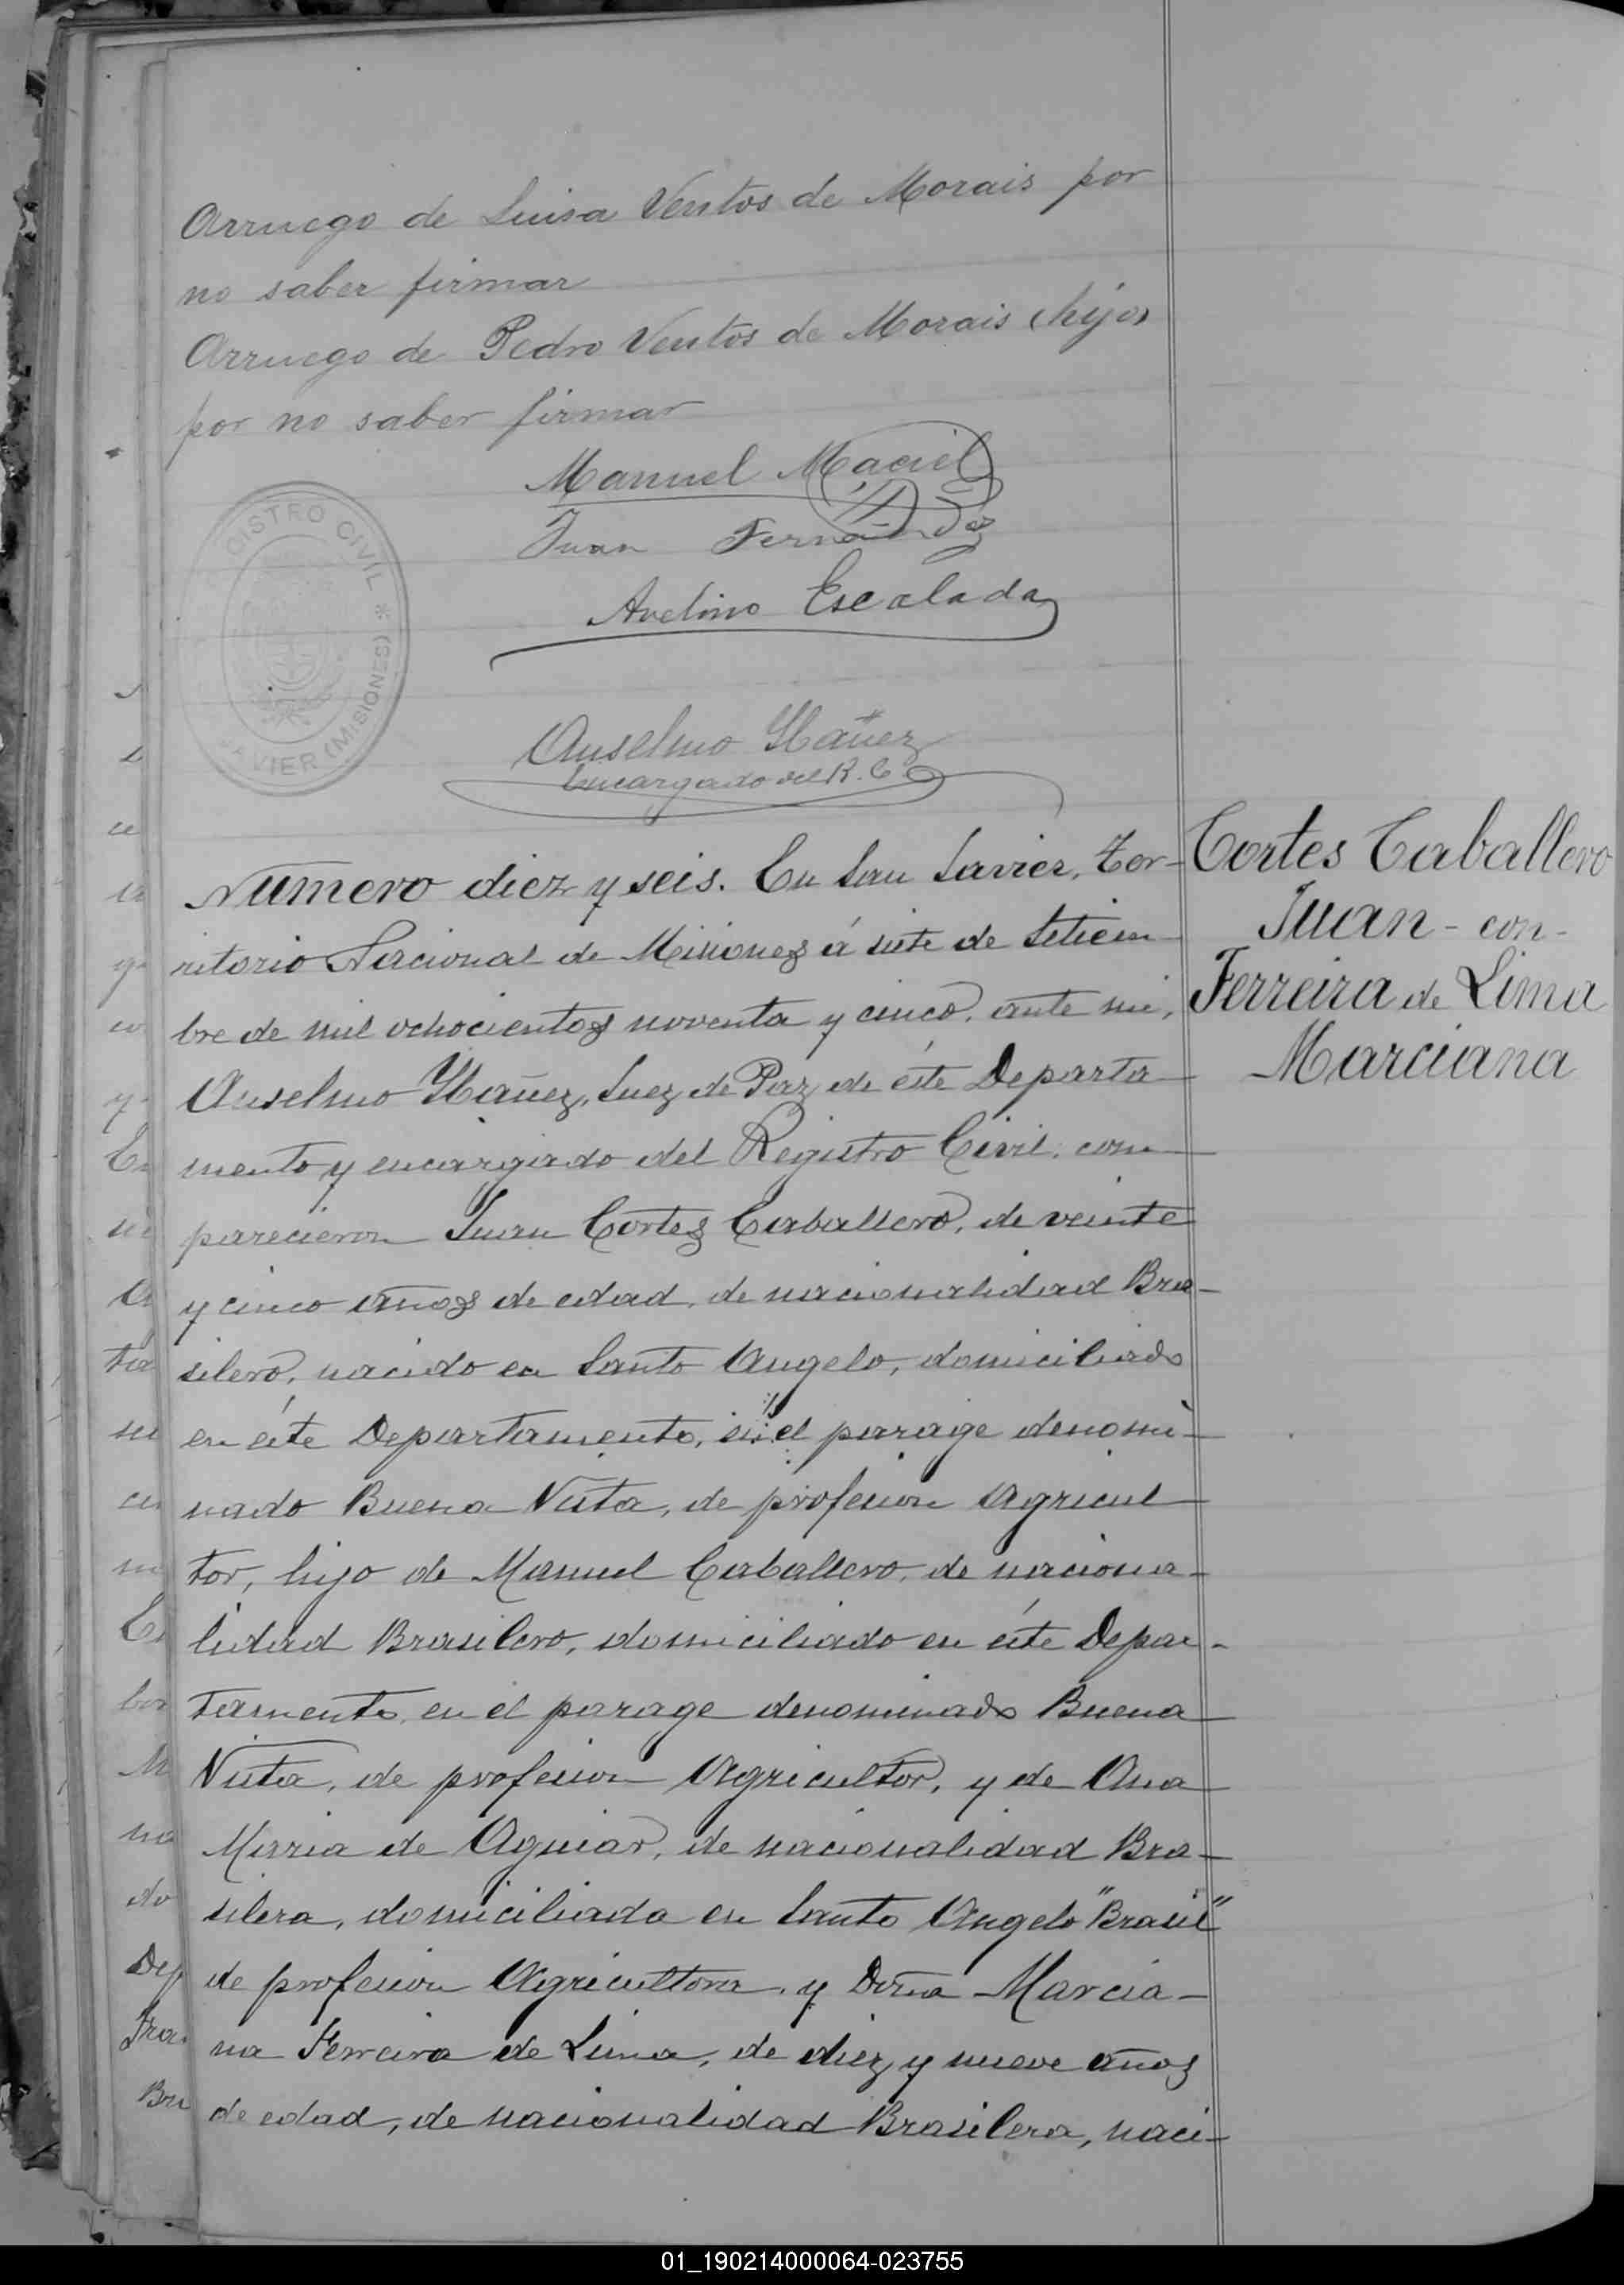 Arruego de Luisa Ventos de Morais por
no saber firmar
Arruego de Pedro Ventos de Morais (hijo)
por no saber firmar
Manuel Maciel
Juan Fernandez
Avelino Escalada
GISTRO CIVIL * AVIER (MISIONES)
Anselmo Ybañez
Encargado del R. C.
Numero diez y seis. En San Javier, Ter-
ritorio Nacional de Misiones á siete de Setiem-
bre de mil ochocientos noventa y cinco, ante mi,
Anselmo Ybañez, Juez de Paz de éste Departa
mento y encargado del Registro Civil, com
parecieron Juan Cortes Caballero, de veinte
y cinco años de edad, de nacionalidad Bra-
silero, nacido en Santo Angelo, domiciliado
en éste Departamento, en el parage denomi-
nado Buena Vista, de profesion Agricul
tor, hijo de Manuel Caballero, de naciona-
lidad Brasilero, domiciliado en éste Depar-
tamento, en el parage denominado Buena
Vista, de profesion Agricultor, y de Ana
Maria de Aguiar, de nacionalidad Bra-
silera, domiciliada en Santo Angelo "Brasil"
de profesion Agricultora, y Doña Marcia-
na Ferreira de Lima, de diez y nueve años
de edad, de nacionalidad Brasilera, naci-
Cortes Caballero
Juan - con -
Ferreira de Lima
Marciana
01_190214000064-023755